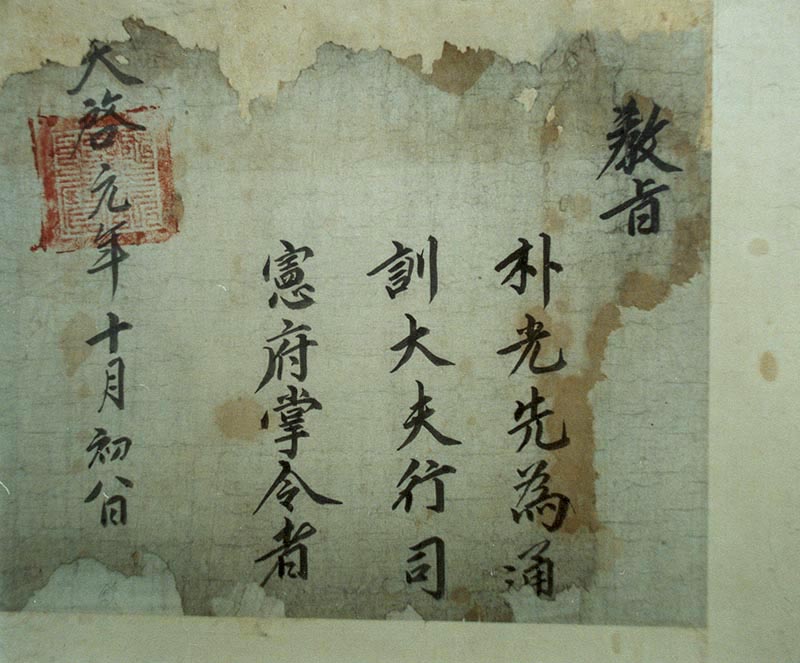 教旨
朴光先為通
訓大夫行司
憲府掌令者
天啓元年十月初八日